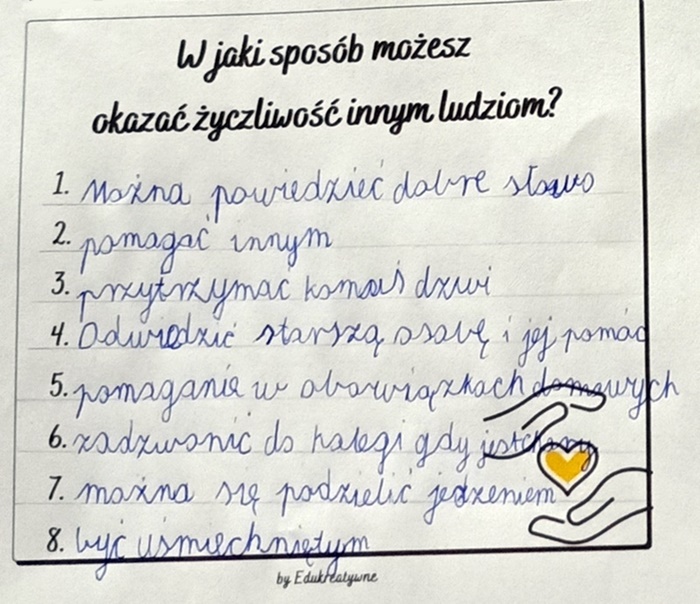 W jaki sposób możesz
okazać życzliwość innym ludziom?
1. Można powiedzieć dobre słowo
2. pomagać innym
3. przytrzymać komuś dzwi
4. Odwiedzić starszą osobę i jej pomóc
5. pomagania w obowiązkach domowych
6. zadzwonić do kolegi gdy jest chory
7. można się podzielić jedzeniem
8. być uśmiechniętym
by Edukreatywne